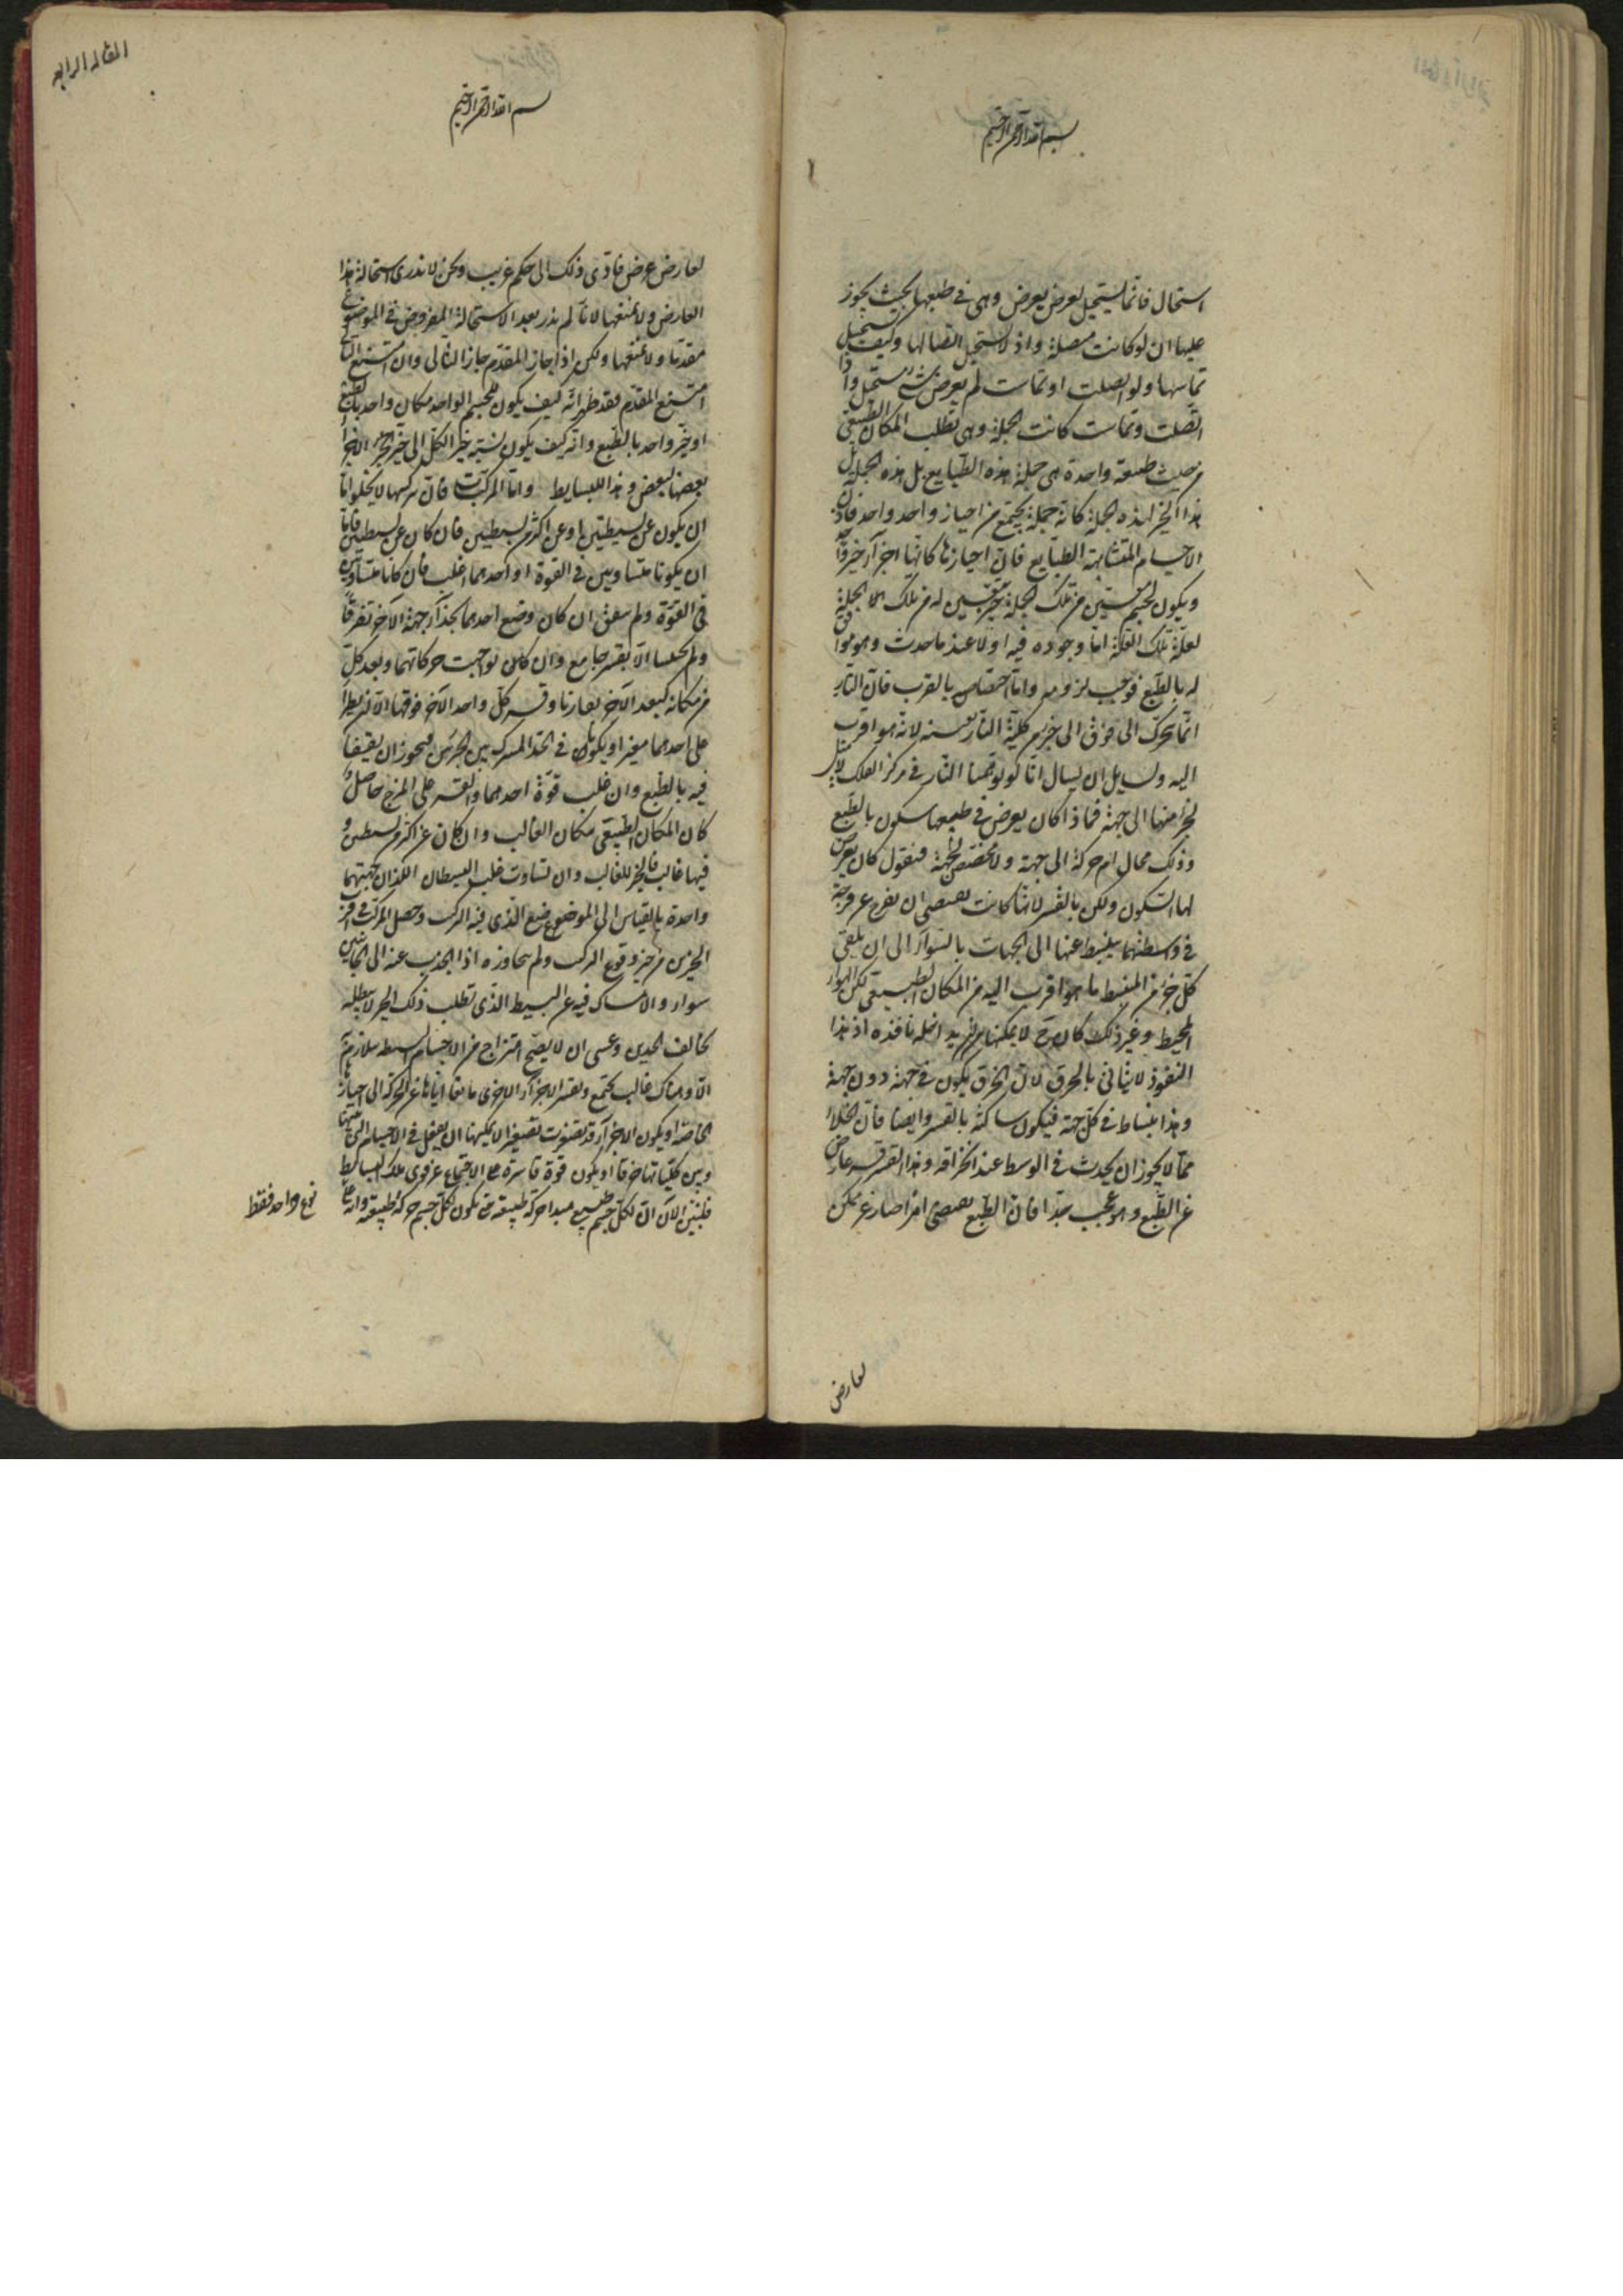 بسم الله الرحمن الرحيم
استحال فانما يستحيل لعرض يعرض وهى فى طبعها بحيث يجوز
عليها ان لو كانت متصلة واذ لا يستحيل اتصالها وكيف يستحيل
تماسها ولو اتصلت او تماست لم يعرض شئ مستحيل واذا
اتصلت وتماست كانت الجملة وهى تطلب المكان الطبيعى
من حيث طبيعة واحدة هى جملة هذه الطبايع بل هذه الجملة بل
هذا الحيز لهذه الجملة كانه جملة يجتمع من احياز واحد واحد فاذن
الاجسام المتشابهة الطبايع فان احيازها كانها اجزآء حيز
ويكون لجسم معين من تلك الجملة حيز معين له من تلك الجملة
لعلة تلك العلة اما وجوده فيه اولا عند ما حدث وهو موافق
له بالطبع فوجب لزومه واما اختصاص بالقرب فان النار
انما تتحرك الى فوق الى حيز من كلية النار بعينه لانه هو اقرب
اليه ولسايل ان يسال انا لو توهمنا النار فى مركز الفلك لا يميل
جزء منها الى جهة فماذا كان يعرض فى طبيعها سكون بالطبع
وذلك محال ام حركة الى جهة ولا مخصص لجهة فنقول كان يعرض
لها السكون ولكن بالقسر لانها كانت تقتضى ان تفرج عن فرجة
فى وسطها ينبسط عنها الى الجهات بالسوآء الى ان يلقى
كل جزء من المنبسط ما هو اقرب اليه من المكان الطبيعى لكن الهواء
المحيط وغير ذلك كان لا يمكنها من نافذه اذ هذا
النفوذ لا يتاتى بالخرق لان الخرق يكون فى جهة دون جهة
وهذا انبساط فى كل جهة فيكون ساكنة بالقسر وايضا فان الخلاء
مما لا يجوز ان يحدث فى الوسط عند انخراقه وهذا القسر قسر عارض
عن الطبع وهو عجيب جدا فان الطبع يقتضى امرا صار غير ممكن
لعارض
المقالة الرابعه
بسم الله الرحمن الرحيم
لعارض عرض فادى ذلك الى حكم غريب ولكن لا ندرى استحالة هذا
العارض ولا نمنعها لانا لم ندر بعد الاستحالة المفروض فى الموضوع
مقدما ولا نمنعها ولكن اذا جاز المقدم جاز التالى وان امتنع التالى
امتنع المقدم فقد ظهر انه كيف يكون للجسم الواحد مكان واحد بالطبع
او حيز واحد بالطبع وانه كيف يكون نسبة حيز الكل الى حيز الجزء
بعضها لبعض وهذا للبسايط واما المركبات فان تركيبها لا يخلو اما
ان يكون عن بسيطين او عن اكثر من بسيطين فان كان عن بسيطين فاما
ان يكونا متساويين فى القوة او احدهما اغلب فان كانا متساويين
فى القوة ولم يتفق ان كان وضع احدهما بحذآء جهة الآخر تفرقا
ولم يحتبسا الا بقسر جامع وان كان تواجهت حركاتهما وبعد كل
من مكانه كبعد الآخر تعارقا وقسر كل واحد الآخر فوقفا الا ان يطرأ
على احدهما معين او يكونان فى الحد المشترك بين الحيزين فيجوز ان يقفا
فيه بالطبع وان غلب قوة احدهما والقسر على المزج حاصل
كان المكان الطبيعى مكان الغالب وان كان عن اكثر من بسيطين و
فيها غالب فالحيز للغالب وان تساوت غلب البسيطان اللذان جهتهما
واحدة بالقياس الى الموضع الذى فيه التركيب وحصل المركب فى اقرب
الحيزين من حيز وقوع التركيب ولم يجاوزه اذا الجذب عنه الى الجانبين
سواء والامساك فيه عن البسيط الذى تطلب ذلك الحيز لا يبطله
تخالف الجذبين وعسى ان لا يصح امتزاج من الاجسام البسيطة متلازم
الا وهناك غالب يجمع ويقسر الاجزآء الاخرى مانعا اياها عن الحركة الى احيازها
الخاصة او يكون الاجزآء قد تصغرت تصغيرا لا يمكنها ان يفعل فى الاجسام التى بينها
وبين كلياتها خرقا او يكون قوة قاسرة على الاجتماع عن قوى تلك البسايط
فلنبين الآن ان لكل جسم طبيعى مبدا حركة طبيعية حتى تكون لكل جسم حركة طبيعية وانه على
نوع واحد فقط